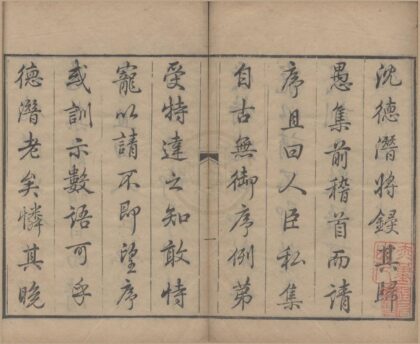 沈德潛將録其歸
愚集前稽首而請
序且曰人臣私集
自古無御序例第
受特達之知敢恃
寵以請不即望序
或訓示數語可乎
德潛老矣憐其晚
一